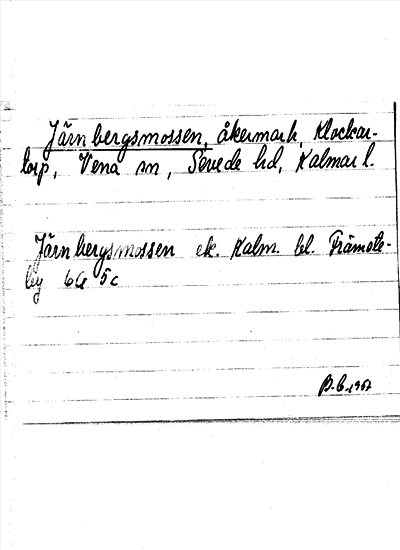 Järnbergsmossen, åkermark, Klockar-
torp, Vena sn, Sevede hd, Kalmar l.
Järnbergsmossen ek. Kalm. bl. Främste-
by 6G 5c
B.C. 1957